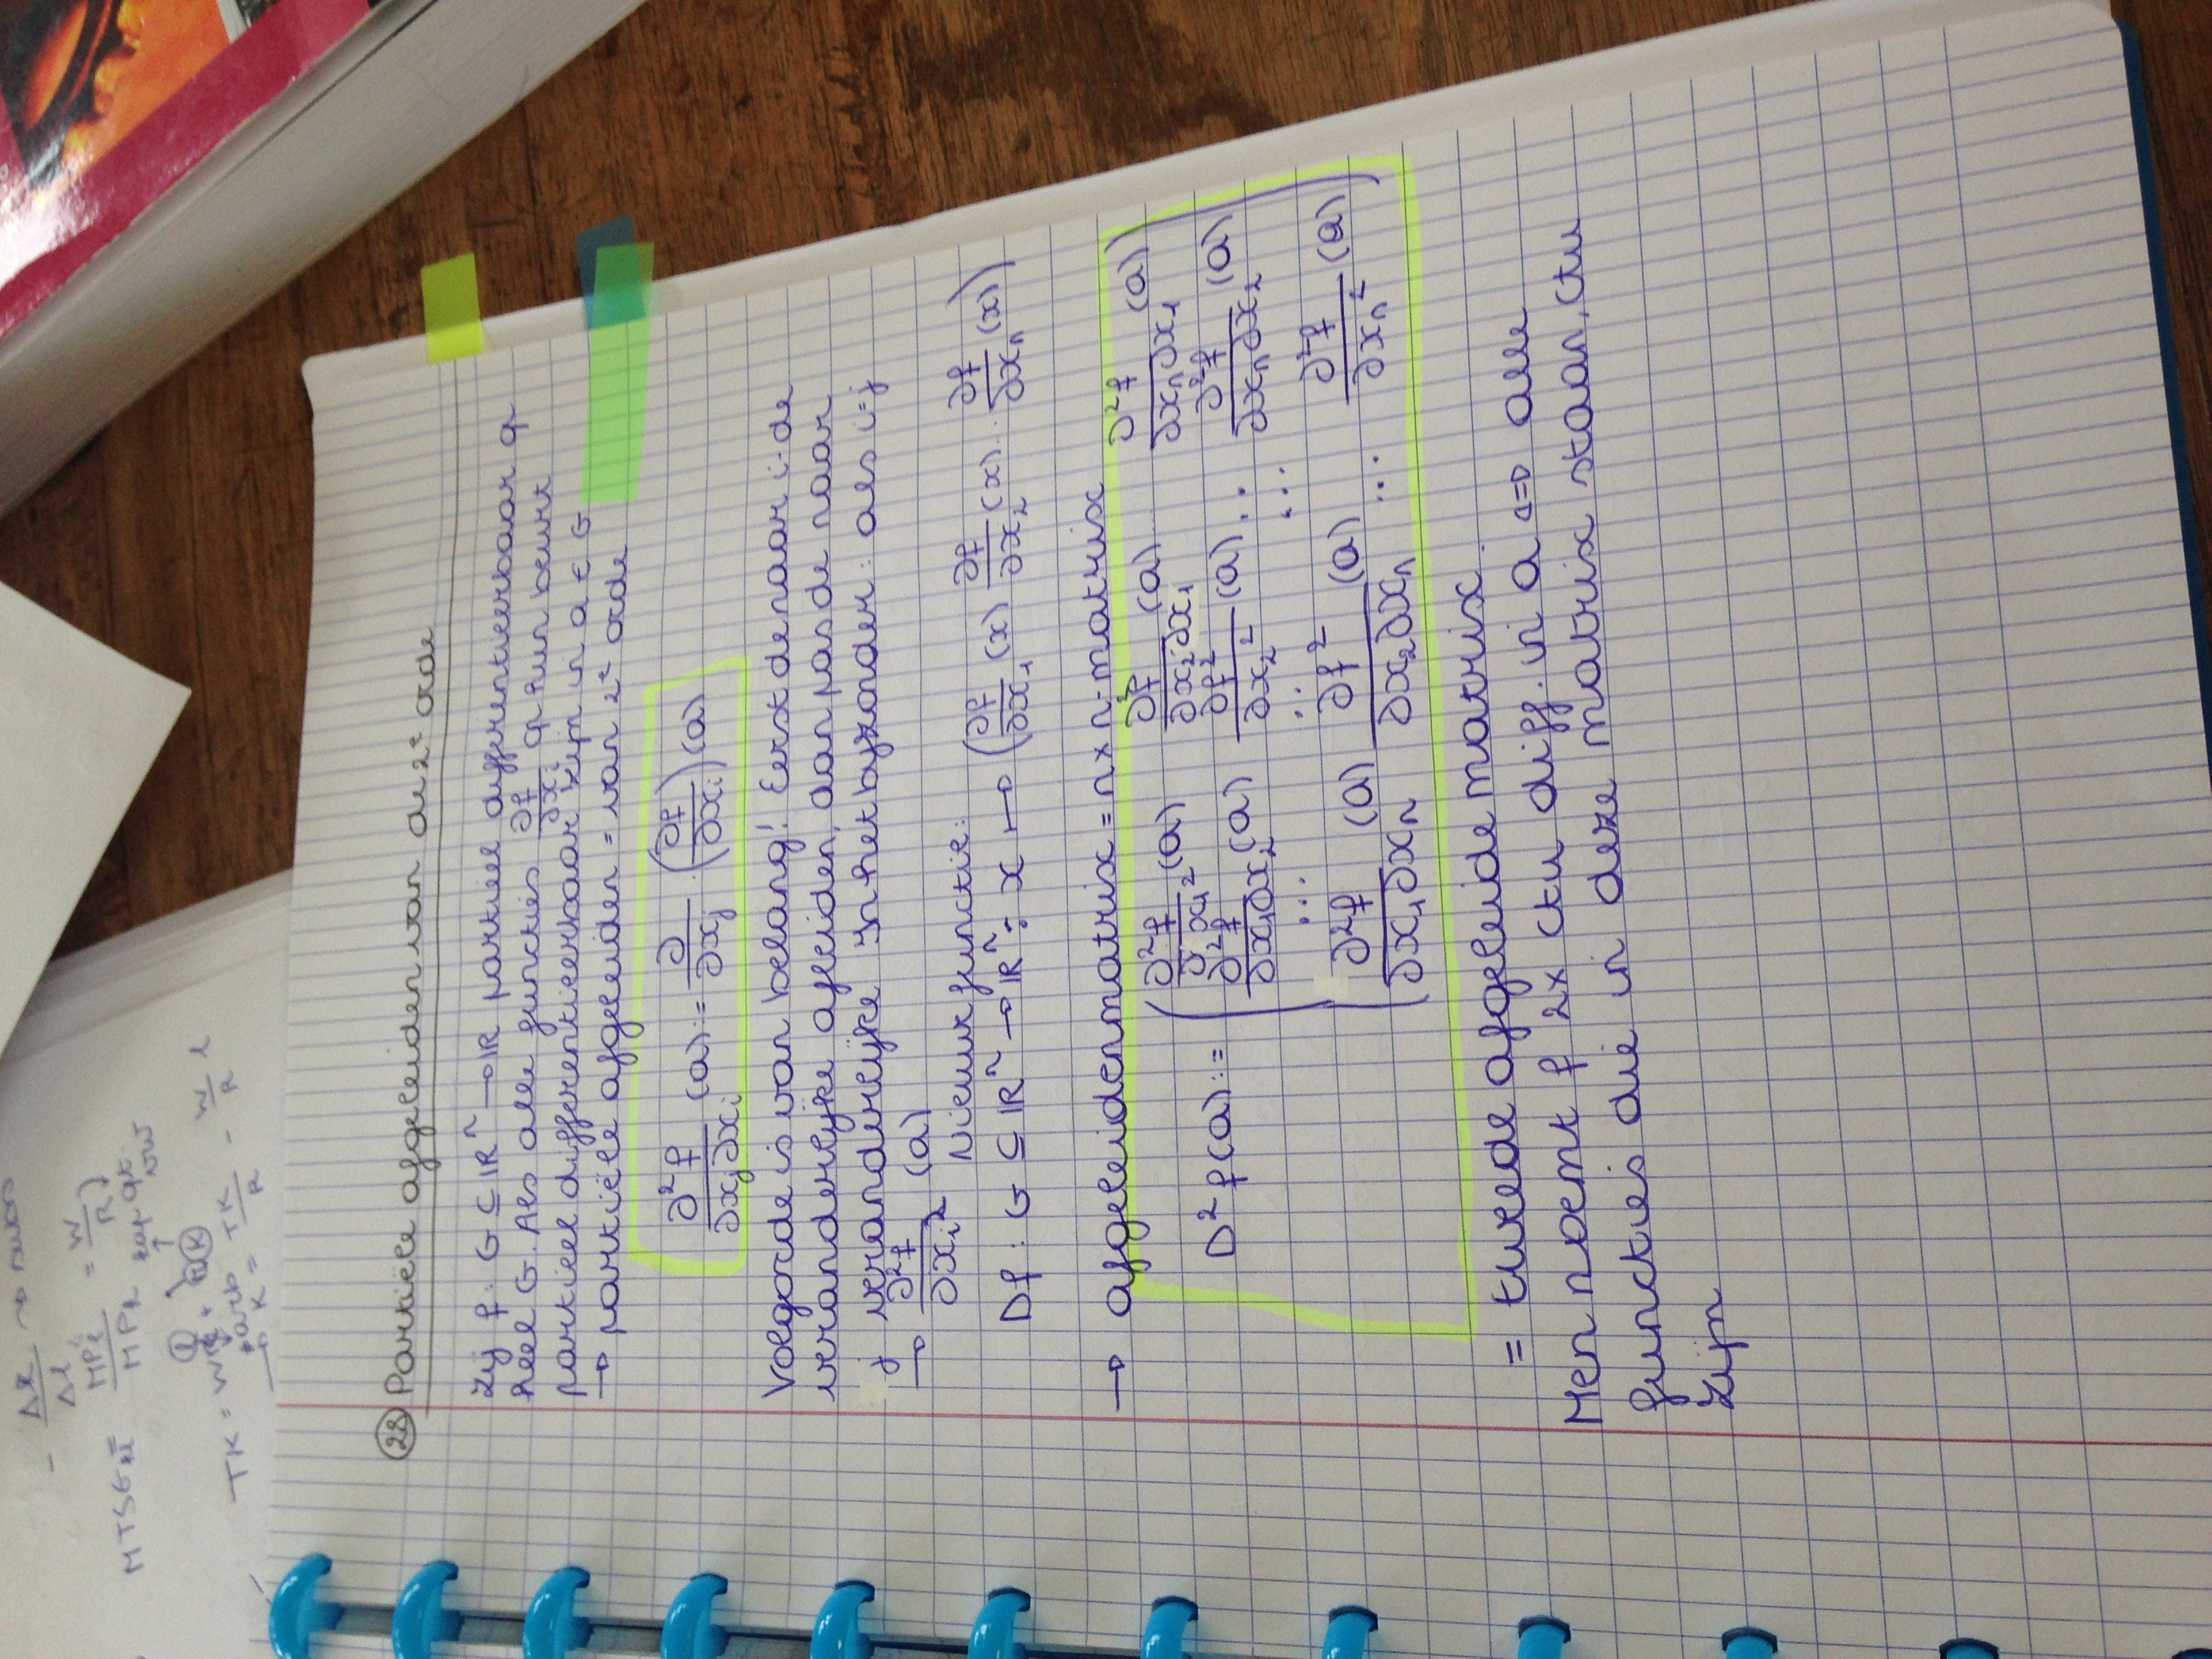 28 Partiële afgeleiden van de 2e orde
Zij f: G ⊆ ℝⁿ → ℝ partieel differentieerbaar op
heel G. Als alle functies ∂f/∂xᵢ op hun beurt
partieel differentieerbaar zijn in a ∈ G
→ partiële afgeleiden = van 2e orde
∂²f/∂xⱼ∂xᵢ (a) := ∂/∂xⱼ (∂f/∂xᵢ) (a)
Volgorde is van belang! Eerst de naar i-de
veranderlijke afleiden, dan pas de naar
j veranderlijke. In het bijzonder: als i=j
→ ∂²f/∂xᵢ² (a)
Nieuwe functie:
Df: G ⊆ ℝⁿ → ℝⁿ: x ↦ (∂f/∂x₁ (x) ∂f/∂x₂ (x) ... ∂f/∂xₙ (x))
→ afgeleidenmatrix = n x n-matrix
∂²f/∂x₁² (a) ∂²f/∂x₂∂x₁ (a) ... ∂²f/∂xₙ∂x₁ (a)
D²f(a) := ∂²f/∂x₁∂x₂ (a) ∂f²/∂x₂² (a) ... ∂²f/∂xₙ∂x₂ (a)
... ... ...
∂²f/∂x₁∂xₙ (a) ∂f²/∂x₂∂xₙ (a) ... ∂²f/∂xₙ² (a)
= tweede afgeleide matrix.
Men noemt f 2x ctu diff. in a ⇔ alle
functies die in deze matrix staan, ctu
zijn
- Δk/Δl →
MTSG = MPl/MPk = w/R
TK = wl + RK
→ K = TK/R - w/R l